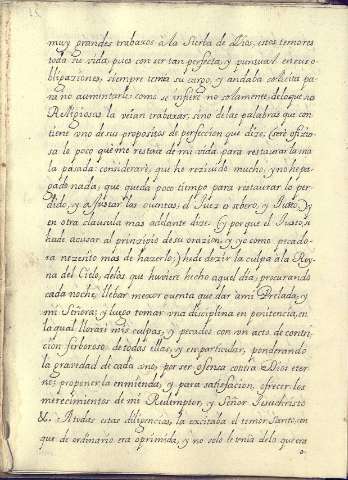 muy grandes trabaxos à la Sierba de Dios, estos temores
toda su vida, pues con ser tan perfecta, y puntual en sus o
bligaciones, siempre temia su cargo, y andaba solicita pa
ra no aumentarle: como se infiere no solamente, de lo que sus
Religiosas la veian trabaxar, sino de las palabras que con
tiene uno de sus propositos de perfeccion que dize, (seré oficio
sa lo poco que me restare de mi vida, para restaurar la ma
la pasada: considerare, que he rezivido mucho, y no he pa
gado nada, que queda poco tiempo para restaurar lo per
dido, y ajustar las cuentas, el Juez severo, y Justo,) y
en otra clausula mas adelante dize. (y porque el Justo, se
ha de acusar al principio de su orazion, y yo como pecado
ra nezesito mas de hazerlo,) he de dezir la culpa à la Rey
na del Cielo, de los que huviere hecho aquel dia, procurando
cada noche, llebar mexor cuenta que dar à mi Prelada, y
mi Señora; y luego tomar una disciplina en penitencia, en
la qual lloraré mis culpas, y pecados con un acto de contri
cion ferboroso, de todas ellas, y en particular, ponderando
la gravedad de cada una, por ser ofensa contra Dios eter
no; proponer la enmienda, y para satisfacion, ofrecer los
merecimientos de mi Redemptor, y Señor Jesuchristo
&c. A todas estas diligencias, la excitaba el temor Santo, con
que de ordinario era oprimida, y no solo le tenia de lo que era